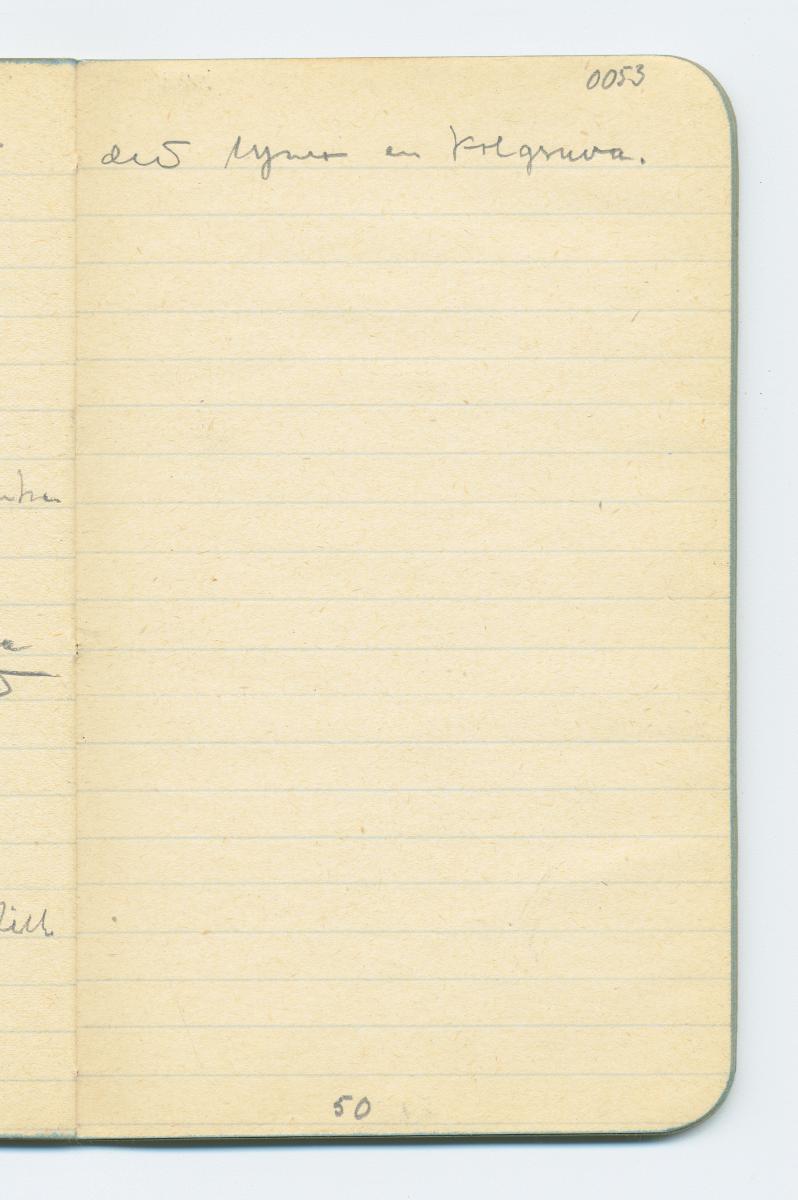 0053
det rymer en kolgruva.
50